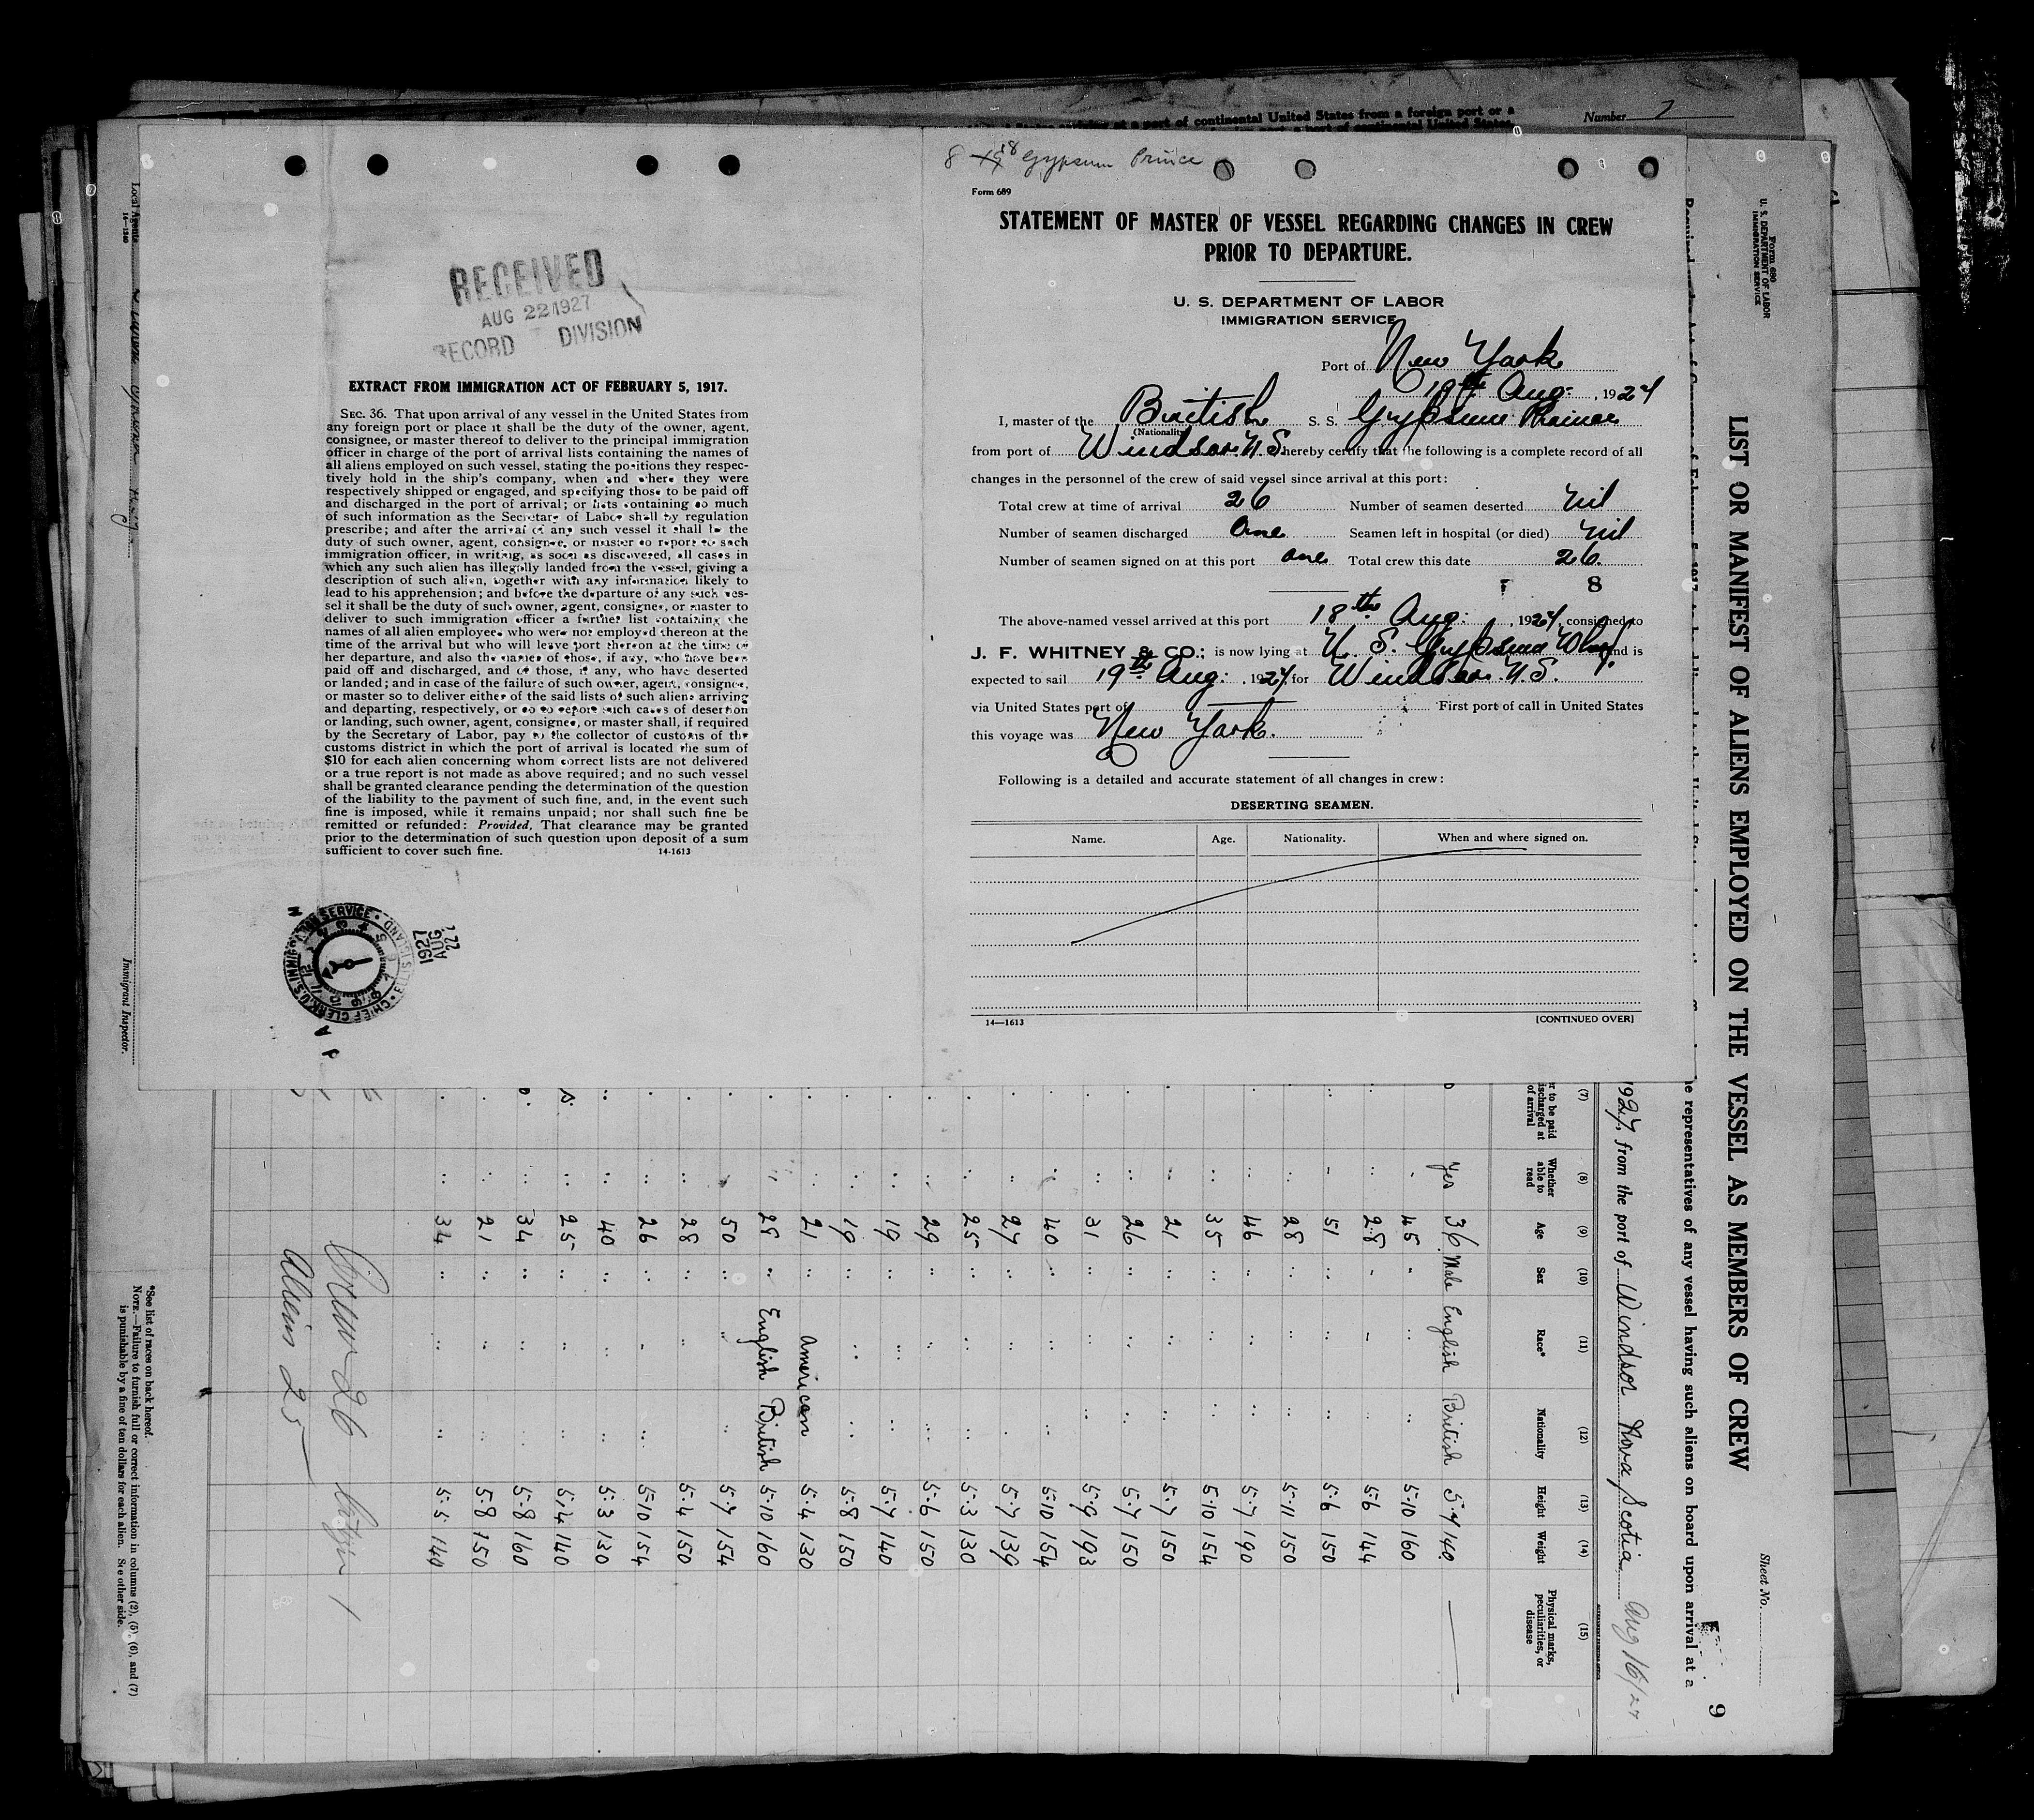 Number 7
8 18 Gypsum Prince
Form 689
STATEMENT OF MASTER OF VESSEL REGARDING CHANGES IN CREW
PRIOR TO DEPARTURE.
U. S. DEPARTMENT OF LABOR
IMMIGRATION SERVICE
Port of New York
19th Aug: , 1927
I, master of the British S. S. Gypsum Prince
(Nationality)
from port of Windsor. N. S. hereby certify that the following is a complete record of all
changes in the personnel of the crew of said vessel since arrival at this port:
Total crew at time of arrival 26 Number of seamen deserted nil
Number of seamen discharged One Seamen left in hospital (or died) nil
Number of seamen signed on at this port one Total crew this date 26.
8
The above-named vessel arrived at this port 18th Aug: , 1927, consigned to
J. F. WHITNEY & CO.; is now lying at U. S. Gypsum Wharf and is
expected to sail 19th Aug: , 1927, for Windsor. N. S.
via United States port of First port of call in United States
this voyage was New York.
Following is a detailed and accurate statement of all changes in crew:
DESERTING SEAMEN.
Name. Age. Nationality. When and where signed on.
14—1613 [CONTINUED OVER]
RECEIVED
AUG 22 1927
RECORD DIVISION
EXTRACT FROM IMMIGRATION ACT OF FEBRUARY 5, 1917.
SEC. 36. That upon arrival of any vessel in the United States from
any foreign port or place it shall be the duty of the owner, agent,
consignee, or master thereof to deliver to the principal immigration
officer in charge of the port of arrival lists containing the names of
all aliens employed on such vessel, stating the positions they respec-
tively hold in the ship's company, when and where they were
respectively shipped or engaged, and specifying those to be paid off
and discharged in the port of arrival; or lists containing so much
of such information as the Secretary of Labor shall by regulation
prescribe; and after the arrival of any such vessel it shall be the
duty of such owner, agent, consignee, or master to report to such
immigration officer, in writing, as soon as discovered, all cases in
which any such alien has illegally landed from the vessel, giving a
description of such alien, together with any information likely to
lead to his apprehension; and before the departure of any such ves-
sel it shall be the duty of such owner, agent, consignee, or master to
deliver to such immigration officer a further list containing the
names of all alien employees who were not employed thereon at the
time of the arrival but who will leave port thereon at the time of
her departure, and also the names of those, if any, who have been
paid off and discharged, and of those, if any, who have deserted
or landed; and in case of the failure of such owner, agent, consignee,
or master so to deliver either of the said lists of such aliens arriving
and departing, respectively, or so to report such cases of desertion
or landing, such owner, agent, consignee, or master shall, if required
by the Secretary of Labor, pay to the collector of customs of the
customs district in which the port of arrival is located the sum of
$10 for each alien concerning whom correct lists are not delivered
or a true report is not made as above required; and no such vessel
shall be granted clearance pending the determination of the question
of the liability to the payment of such fine, and, in the event such
fine is imposed, while it remains unpaid; nor shall such fine be
remitted or refunded: Provided, That clearance may be granted
prior to the determination of such question upon deposit of a sum
sufficient to cover such fine. 14-1613
AUG 22 1927
Form 680
U. S. DEPARTMENT OF LABOR
IMMIGRATION SERVICE
Sheet No.
LIST OR MANIFEST OF ALIENS EMPLOYED ON THE VESSEL AS MEMBERS OF CREW
9
representatives of any vessel having such aliens on board upon arrival at a
1927, from the port of Windsor Nova Scotia Aug 16/27
(7) (8) (9) (10) (11) (12) (13) (14) (15)
Whether able to read Age Sex Race* Nationality Height Weight Physical marks, peculiarities, or disease
yes 36 Male English British 5.4 140
45 5.10 160
28 5.6 144
51 5.6 150
28 5.11 150
46 5.7 190
35 5.10 154
21 5.7 150
26 5.7 150
31 5.9 193
40 5.10 154
27 5.7 139
25 5.3 130
29 5.6 150
19 5.7 140
19 5.8 150
21 American 5.4 130
28 English British 5.10 160
50 5.7 154
28 5.4 150
26 5.10 154
40 5.3 130
25 5.4 140
34 5.8 160
21 5.8 150
34 5.5 140
Crew 26 Citizen 1
Aliens 25
*See list of races on back hereof.
NOTE.—Failure to furnish full or correct information in columns (2), (5), (6), and (7)
is punishable by a fine of ten dollars for each alien. See other side.
Immigrant Inspector.
Local Agents
14—1240